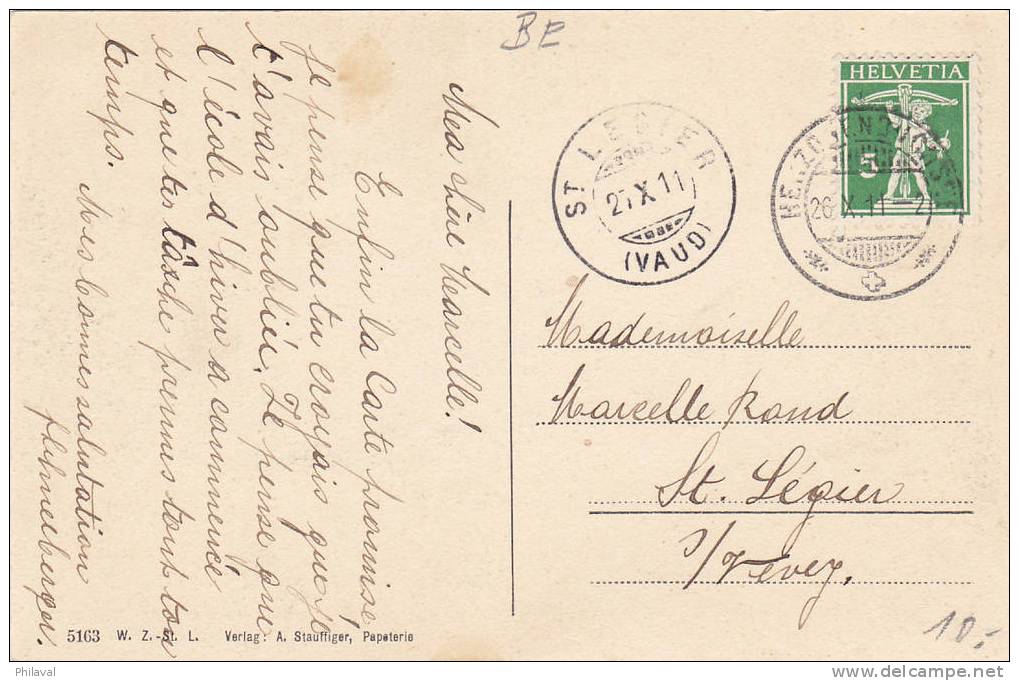 BE
HELVETIA
5
HERZOGENBUCHSEE
26.X.11
ST LEGIER
27.X.11
(VAUD)
Mea chère Marcelle!
Enfin la Carte promise,
je pense que tu croyais que je
t'avais oubliée. Je pense que
l'école d'hiver a commencé
et que tes tâsche prennus tout ton
temps.
Mes bonnes salutation
Mademoiselle
Marcelle Rond
St. Légier
s/Vevey.
10.-
5163 W. Z.-St. L. Verlag: A. Stauffiger, Papeterie
Philaval
www.delcampe.net